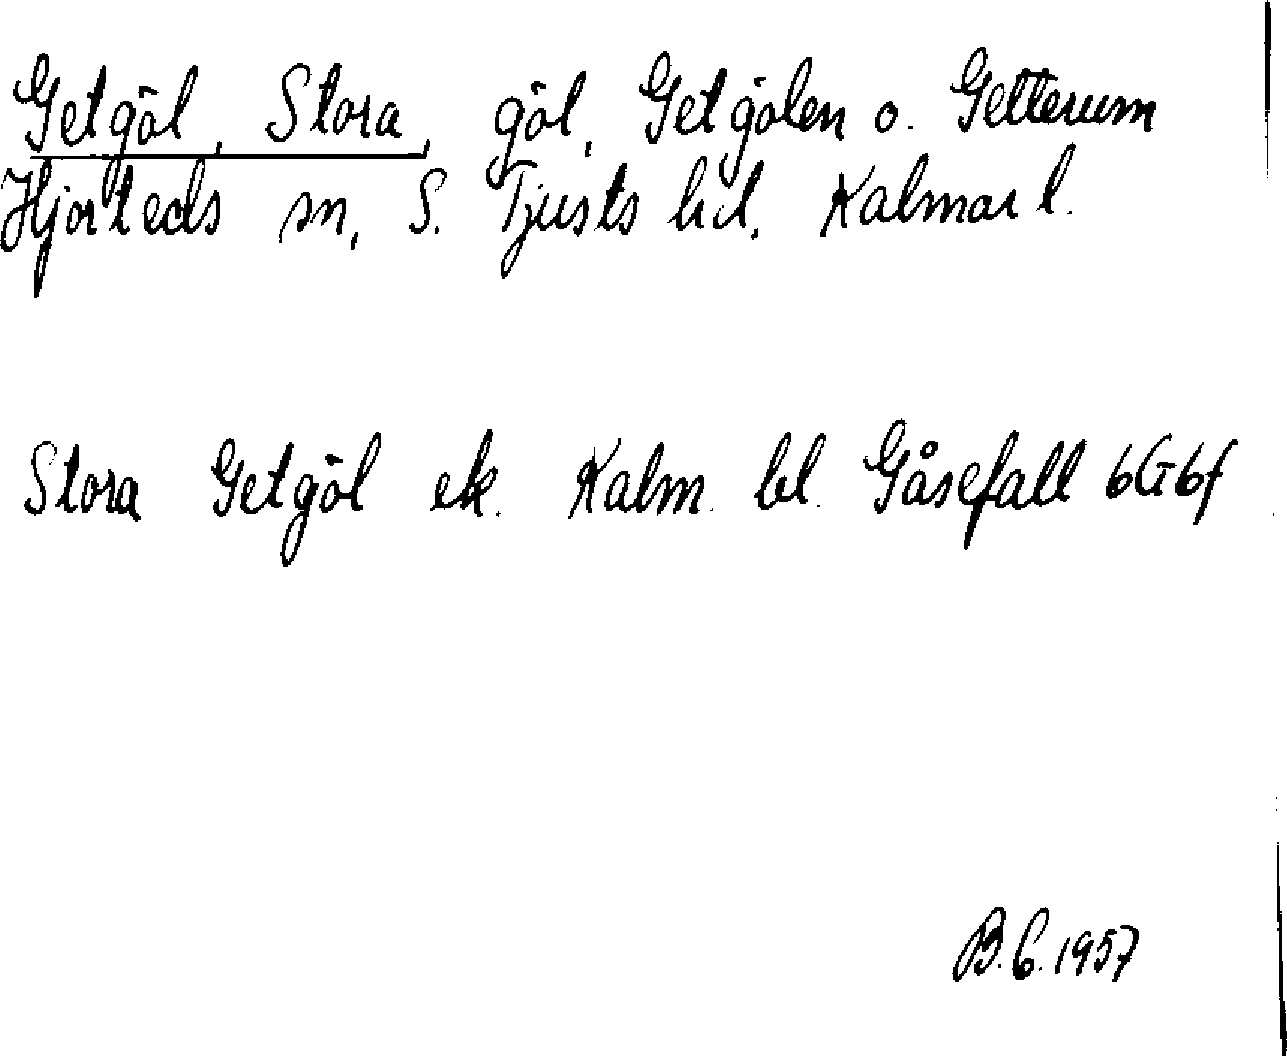 Getgöl, Stora, göl, Getgölen o. Getterum
Hjorteds sn, S. Tjusts hd, Kalmar l.
Stora Getgöl ek. Kalm. bl. Gåsefall 6G6f
B.G.1957